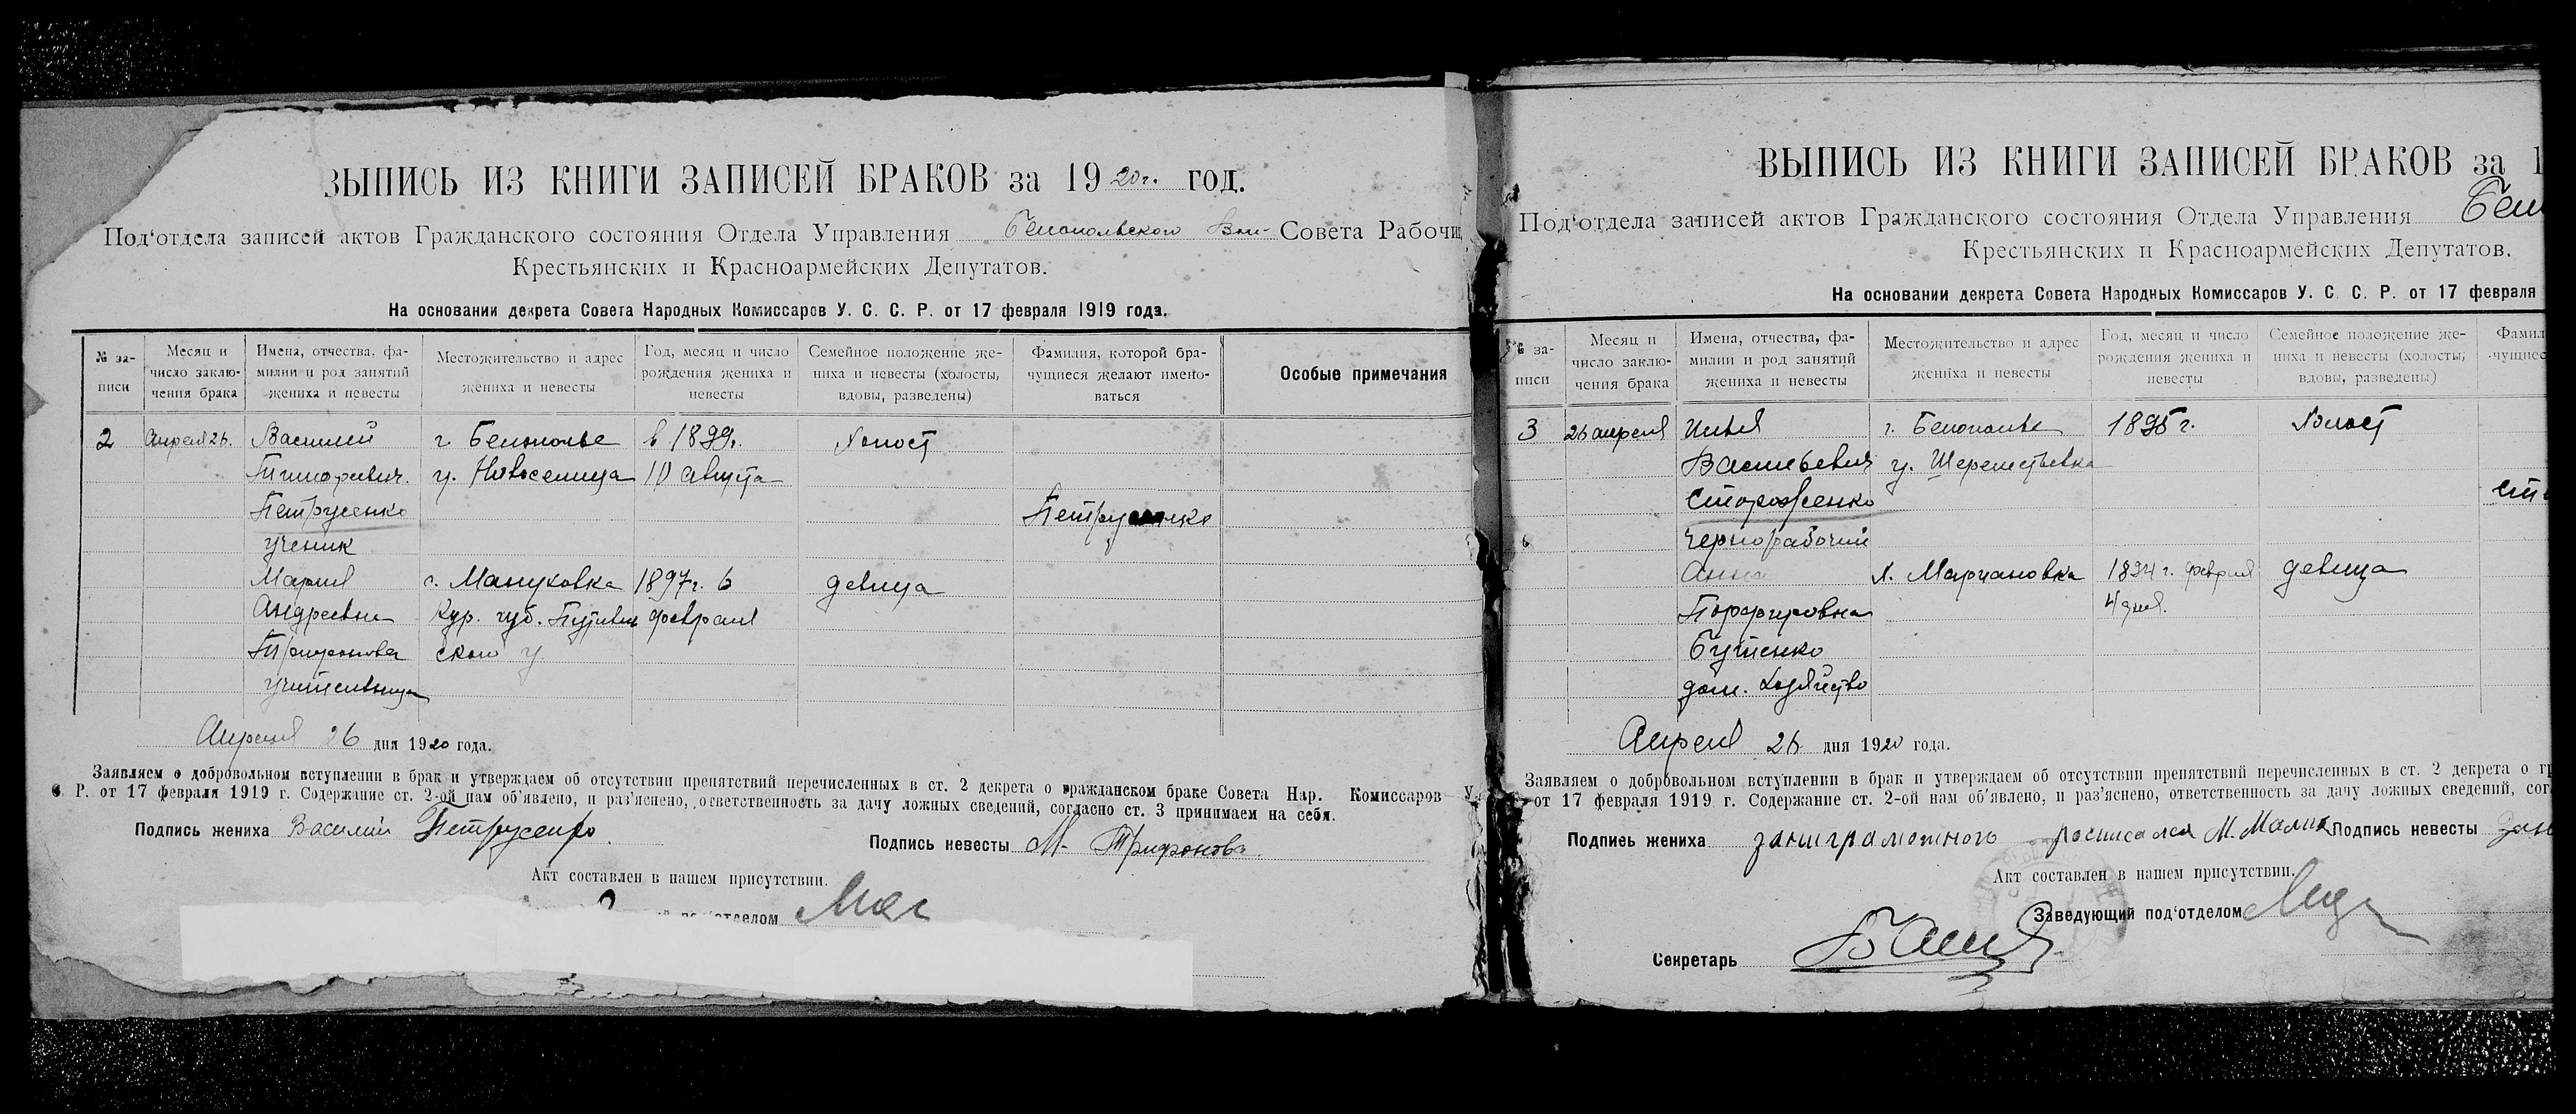 ВЫПИСЬ ИЗ КНИГИ ЗАПИСЕЙ БРАКОВ за 1920г. год.
Под‘отдела записей актов Гражданского состояния Отдела Управления Белопольского Вол- Совета Рабочи
Крестьянских и Красноармейских Депутатов.
На основании декрета Совета Народных Комиссаров У. С. С. Р. от 17 февраля 1919 года.
№ за-
писи
Месяц и
число заклю-
чения брака
Имена, отчества, фа-
милии и род занятий
жениха и невесты
Местожительство и адрес
жениха и невесты
Год, месяц и число
рождения жениха и
невесты
Семейное положение же-
ниха и невесты (холосты,
вдовы, разведены)
Фамилия, которой бра-
чущиеся желают имено-
ваться
Особые примечания
2 Апреля 26. Василий г. Белополье в 1899г. Холост
Тимофеевич. у. Новоселица 10 августа
Петрусенко Петрусенко
ученик
Мария с. Мануховка 1897г. 6 девица
Андреевна Кур. губ. Путивль февраля
Трифонова ского у
учительница
Апреля 26 дня 1920 года.
Заявляем о добровольном вступлении в брак и утверждаем об отсутствии препятствий перечисленных в ст. 2 декрета о гражданском браке Совета Нар. Комиссаров У.
С. Р. от 17 февраля 1919 г. Содержание ст. 2-ой нам об‘явлено, и раз‘яснено, ответственность за дачу ложных сведений, согласно ст. 3 принимаем на себя.
Подпись жениха Василий Петрусенко. Подпись невесты М. Трифонова
Акт составлен в нашем присутствии.
под‘отделом
ВЫПИСЬ ИЗ КНИГИ ЗАПИСЕЙ БРАКОВ за 1
Под‘отдела записей актов Гражданского состояния Отдела Управления Бел
Крестьянских и Красноармейских Депутатов.
На основании декрета Совета Народных Комиссаров У. С. С. Р. от 17 февраля
№ за-
писи
Месяц и
число заклю-
чения брака
Имена, отчества, фа-
милии и род занятий
жениха и невесты
Местожительство и адрес
жениха и невесты
Год, месяц и число
рождения жениха и
невесты
Семейное положение же-
ниха и невесты (холосты,
вдовы, разведены)
Фамил
чущиес
3 26 апреля Илья г. Белополье 1895 г. Холост
Васильевич у. Шереметьевка
Стороженко Сто
Чернорабочий
Анна х. Марчановка 1894 г. февраля девица
Порфировна 4 дня.
Бутенко
дом. хозяйство
Апреля 26 дня 1920 года.
Заявляем о добровольном вступлении в брак и утверждаем об отсутствии препятствий перечисленных в ст. 2 декрета о гр
от 17 февраля 1919 г. Содержание ст. 2-ой нам об‘явлено, и раз‘яснено, ответственность за дачу ложных сведений, сог
Подпись жениха расписался М. Малик Подпись невесты
Акт составлен в нашем присутствии.
Заведующий под‘отделом
Секретарь